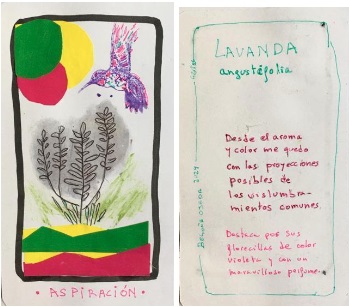 • ASPIRACIÓN •
LAVANDA
angustéfolia
Desde el aroma
y color me quedo
con las proyecciones
posibles de
los vislumbra-
mientos comunes.
Destaca por sus
florecillas de color
violeta y con un
maravilloso perfume.